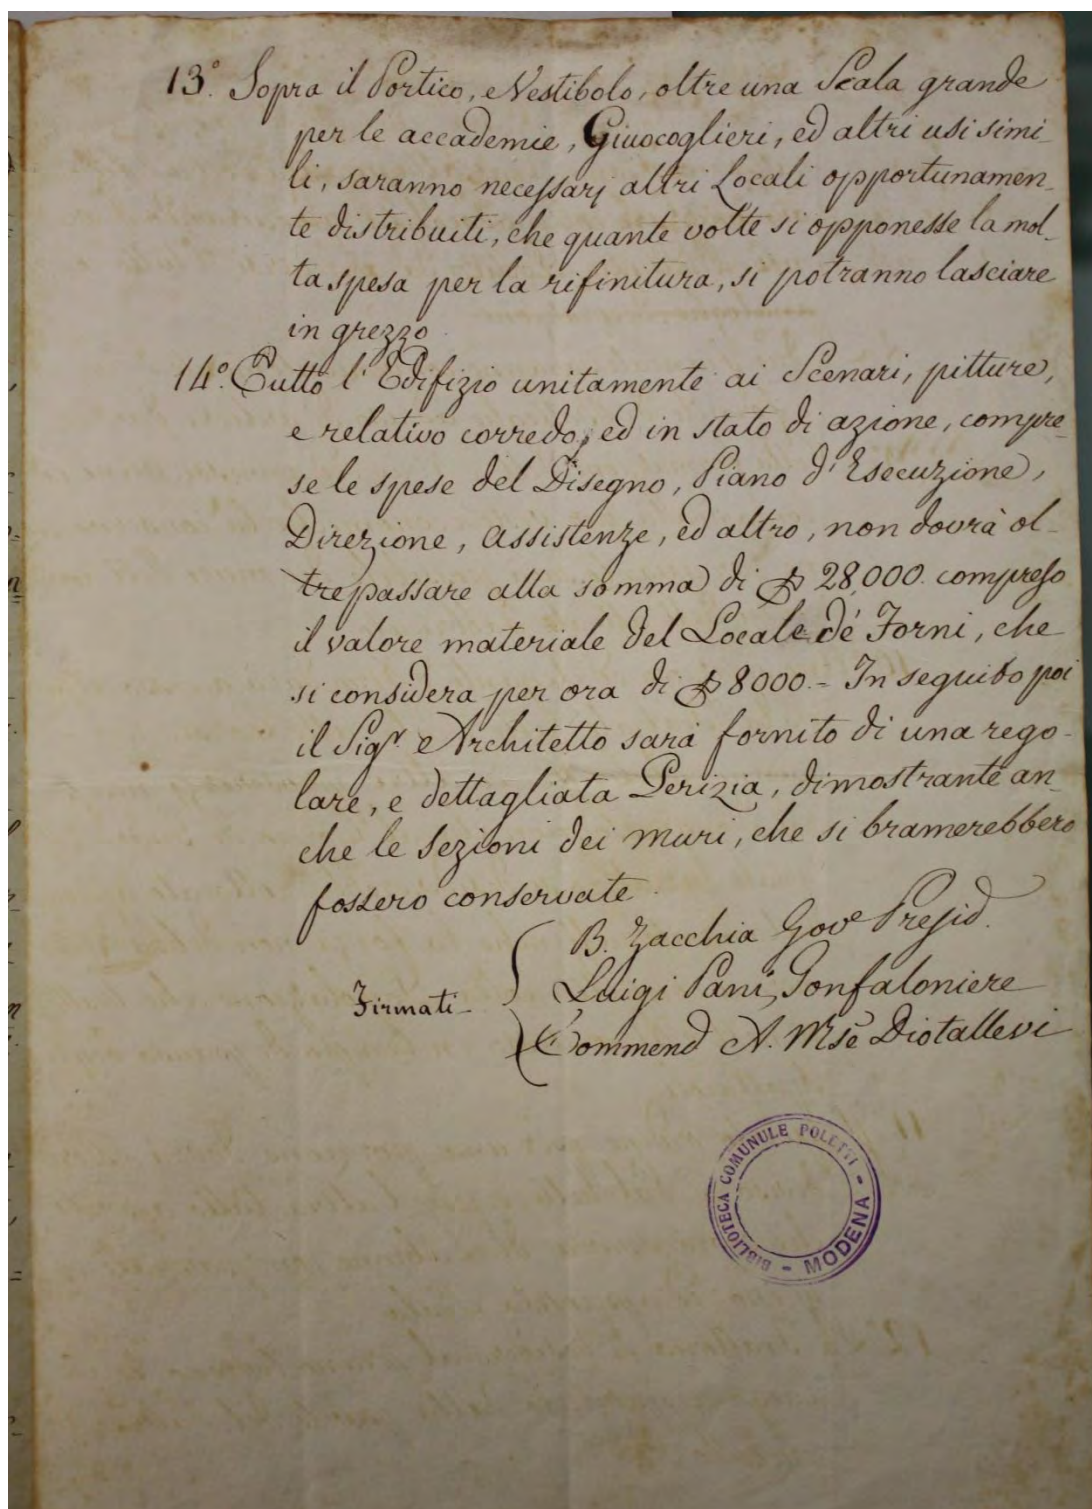 13.° Sopra il Portico, e Vestibolo, oltre una Scala grande
per le accademie, Giuocoglieri, ed altri usi simi-
li, saranno necessarj altri Locali opportunamen-
te distribuiti, che quante volte si opponesse la mol-
ta spesa per la rifinitura, si potranno lasciare
in grezzo.
14.° Tutto l'Edifizio unitamente ai Scenari, pitture,
e relativo corredo, ed in stato di azione, compre-
se le spese del Disegno, Piano d'Esecuzione,
Direzione, Assistenze, ed altro, non dovrà ol-
trepassare alla somma di $ 28,000. compreso
il valore materiale del Locale de' Forni, che
si considera per ora di $ 8000.- In seguito poi
il Sigr. Architetto sarà fornito di una rego-
lare, e dettagliata Perizia, dimostrante an-
che le Sezioni dei muri, che si bramerebbero
fossero conservate.
B. Zacchia Gove Presid.
Firmati- Luigi Pani, Gonfaloniere
Commend A. Mse Diotallevi
BIBLIOTECA COMUNULE POLETTI - MODENA -